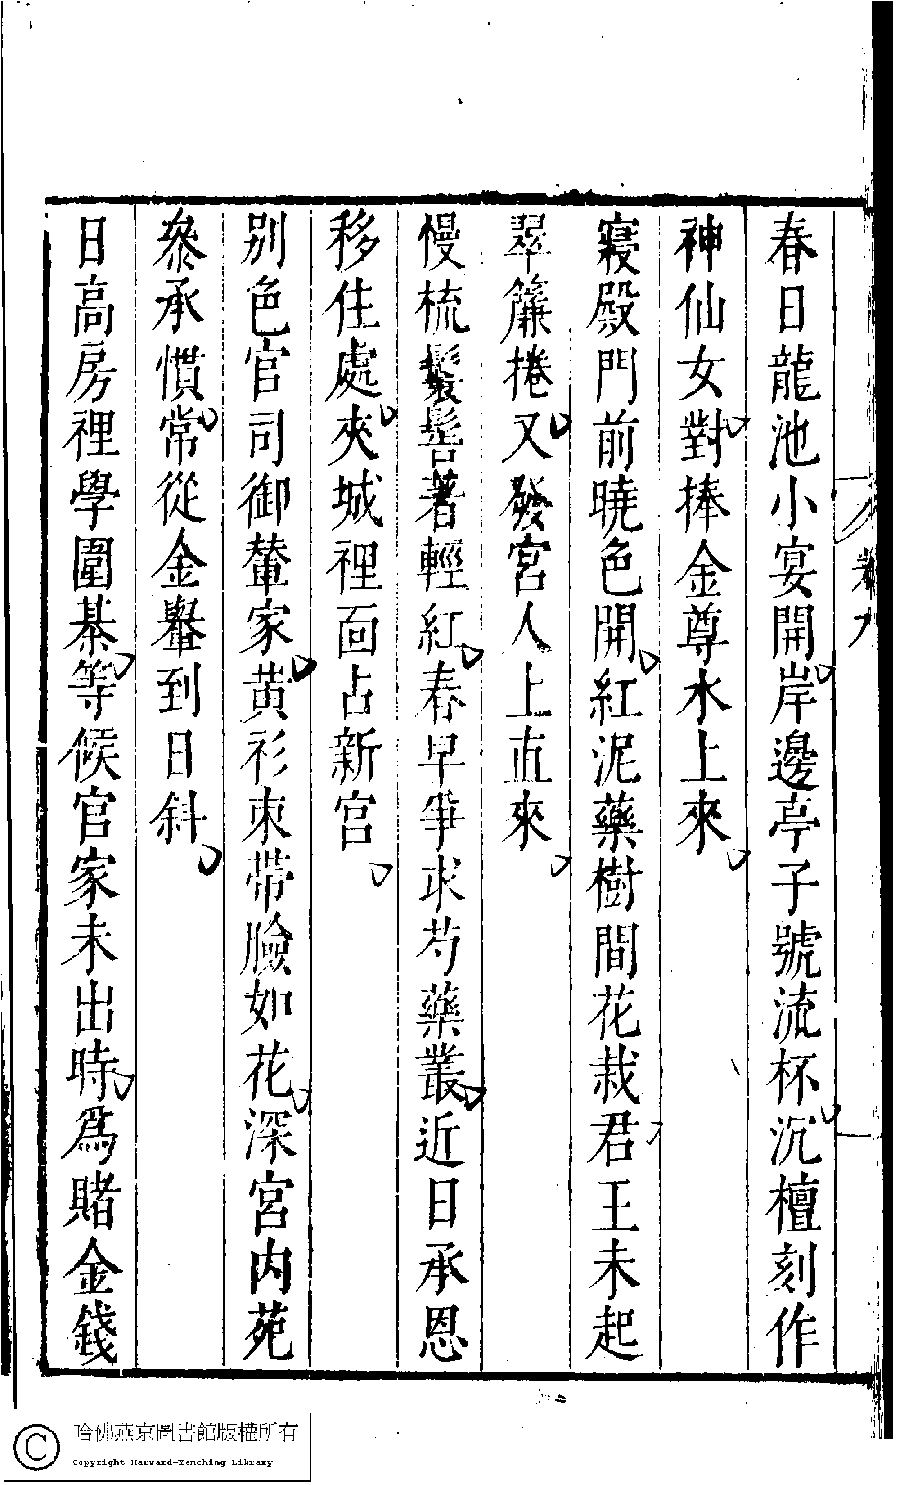 春日龍池小宴開岸邊亭子號流杯沉檀刻作
神仙女對捧金尊水上來
寢殿門前曉色開紅泥藥樹間花栽君王未起
翠簾捲又發宮人上直來
慢梳鬟髻著輕紅春早爭求芍藥叢近日承恩
移住處夾城裡面占新宮
別色官司御輦家黃衫束帶臉如花深宮內苑
叅承慣常從金轝到日斜
日高房裡學圍棊等候官家未出時爲賭金錢
卷九
哈佛燕京圖書館版權所有
Copyright Harvard-Yenching Library